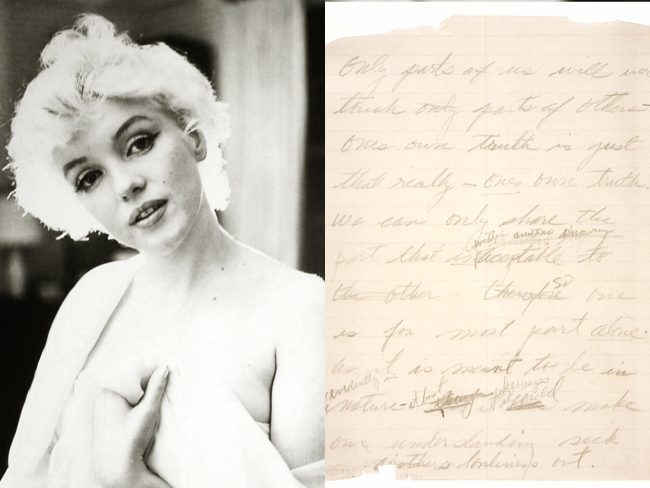 Only parts of us will ever
touch only parts of others —
ones own truth is just
that really — ones own truth.
We can only share the
within another knowing
part that is acceptable to
the other therefore so one
is for most part alone.
as it is meant to be in
evidently in
nature — at best make
our understanding seek
another's lonliness out.